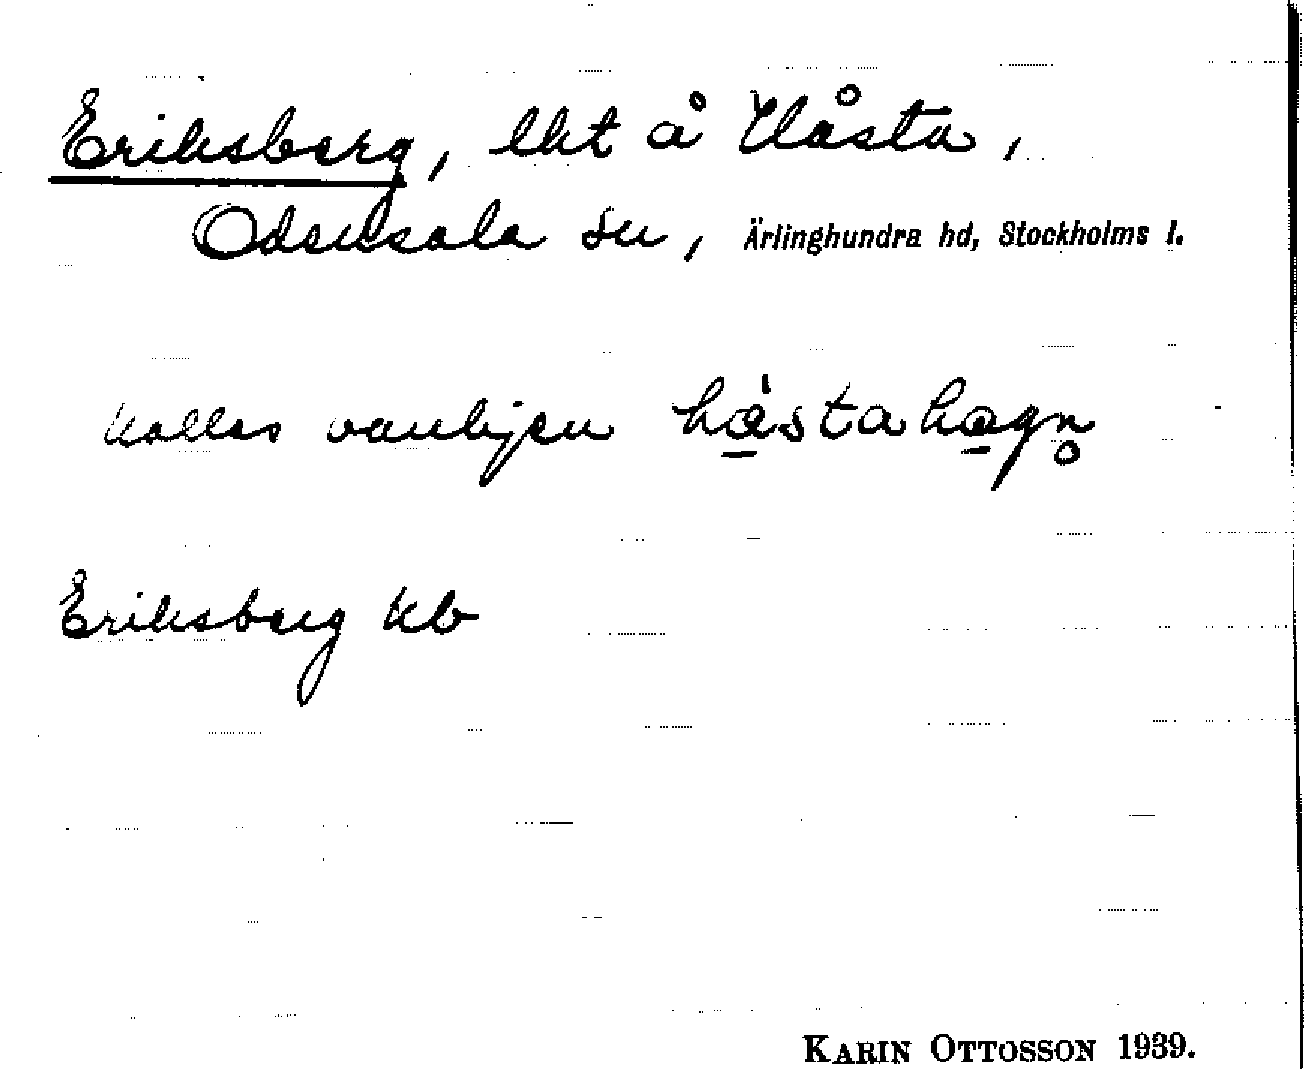 Eriksberg, lht å Håsta,
Odensala sn, Ärlinghundra hd, Stockholms l.
kallas vanligen há̱staha̱gn̥
Eriksberg kb
KARIN OTTOSSON 1939.